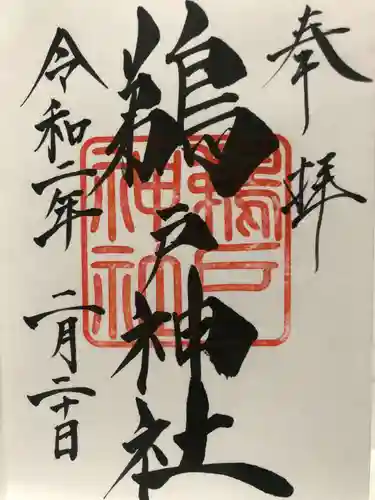 奉拝
鵜戸神社
令和二年
二月二十日
鵜戸
神社